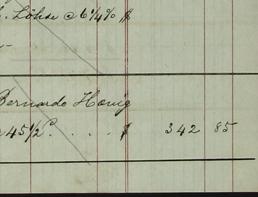 Löhse @ 6 1/4 % $
Bernardo Hœnig
45 1/2 c. . . . . $ 342 85